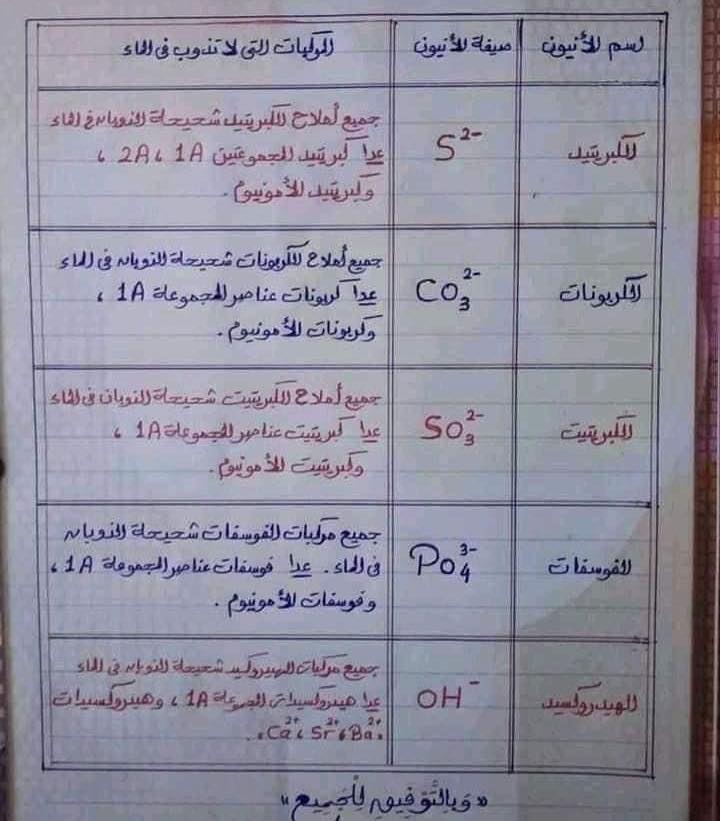 اسم الأنيون
صيغة الأنيون
المركبات التي لا تذوب في الماء
الكبريتيد
S²⁻
جميع أملاح الكبريتيد شحيحة الذوبان في الماء
عدا كبريتيد المجموعتين 1A ، 2A ،
وكبريتيد الأمونيوم .
الكربونات
CO₃²⁻
جميع أملاح الكربونات شحيحة الذوبان في الماء
عدا كربونات عناصر المجموعة 1A ،
وكربونات الأمونيوم .
الكبريتيت
SO₃²⁻
جميع أملاح الكبريتيت شحيحة الذوبان في الماء
عدا كبريتيت عناصر المجموعة 1A ،
وكبريتيت الأمونيوم .
الفوسفات
Po₄³⁻
جميع مركبات الفوسفات شحيحة الذوبان
في الماء . عدا فوسفات عناصر المجموعة 1A ،
وفوسفات الأمونيوم .
الهيدروكسيد
OH⁻
جميع مركبات الهيدروكسيد شحيحة الذوبان في الماء
عدا هيدروكسيدات المجموعة 1A ، وهيدروكسيدات
Ba²⁺ ، Sr²⁺ ، Ca²⁺ .
" وَبِالتَّوْفِيقِ لِلْجَمِيعِ "